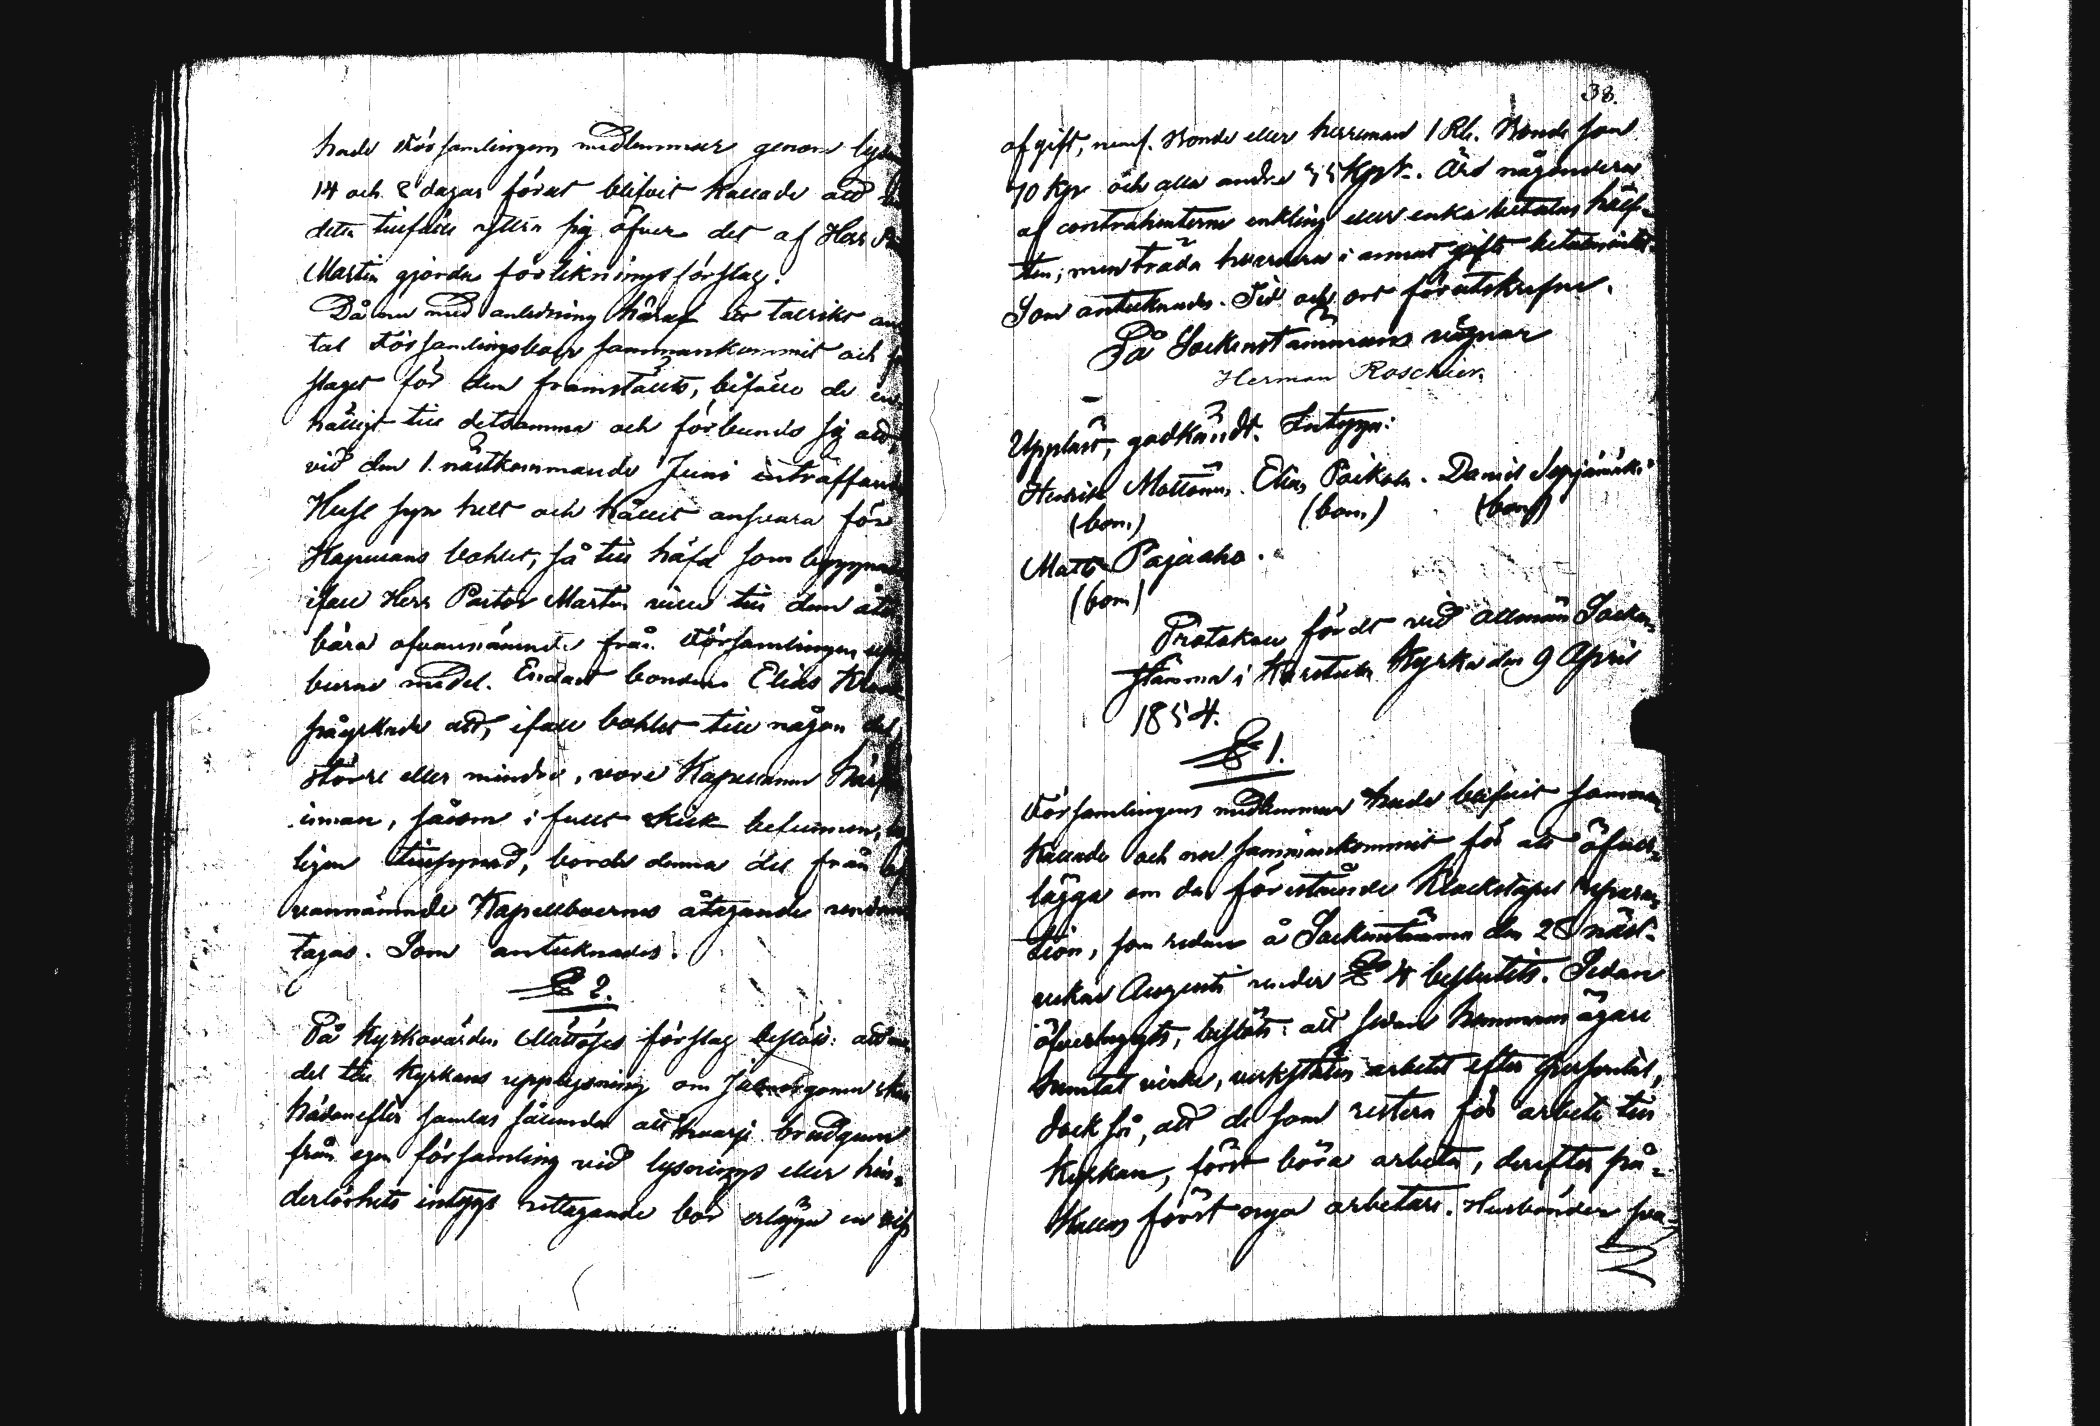 hade Församlingens medlemmar genom lysn
14 och 8 dagar förut blifvit kallade att
detta tillfälle yttra sig öfver det af Herr
Martin gjorda förlikningsförslag.
Då nu med anledning häraf ett talrikt an
tal Församlingsboer sammankommit och
slaget för dem framställts, biföllo de en
hälligt till detsamma och förbundo sig att,
vid den 1. nästkommande Juni inträffande
Huse syn helt och hållit ansvara för
Kapellans bohlet, så till häfd som byggnad
ifall Herr Pastor Martin ville till dem åter
bära ofvannämnde från Församlingen upp
burne medel. Endast bonden Elias
påyrkade att, ifall bohlet till någon del,
större eller mindre, vore Kapellanen
innan, såsom i fullt skick befunnen,
ligen tillsynad, borde denna del från
vannämnde Kapellboernes åtagande undan
tagas. Som antecknades.
§ 2.
På Kyrkovärden Måttöses förslag beslöts: att me
del till Kyrkans upplysning om Julmorgonen skall
hädanefter samlas sålunda att hvarje brudgum
från egen församling vid lysnings eller hin-
derlöshets intygs uttagande bör erlägga en viss
38.
afgift, neml. Bonde eller herreman 1 Rb. Bonde son
70 Kpr och alla andra 35 Kpr. Äro någondera
af contrahenterne enkling eller enka betalas hälf-
ten; men träda hvardera i annat gifte betalas intet.
Som antecknades. Tid och ort förutskrefne.
På Sockenstämmans vägnar
Herman Roschier.
Uppläst, godkändt. Intyga:
Henrik Mottönen. Elias Poikola. Daniel Sepjämäki
(bom.) (bom.) (bom)
Matts Pajaaho.
(bom)
Protokoll fördt vid allmän Socken-
stämma i Karstula Kyrka den 9 April
1854.
§ 1.
Församlingens medlemmar hade blifvit samman-
kallade och nu sammankommit för att öfver-
lägga om den förestående Klockstapel repara-
tion, som redan å Sockenstämman den 28 näst-
vekne Augusti under § 4 beslutits. Sedan
öfverlagts, beslöts: att sedan hemmans ägare
hemtat virke, verkställes arbetet efter personlet,
dock så, att de som restera för arbete till
Kyrkan, först böra arbeta, derefter på-
kallas först nya arbetare. Husbönder sva-